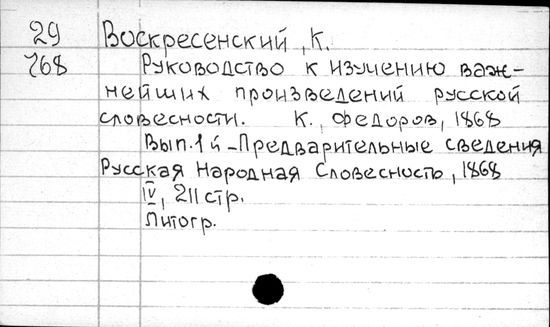 29 Воскресенский, К.
768 Руководство к изучению важ-
нейших произведений русской
словесности. К., Федоров, 1868
Вып. 1й - Предварительные сведения
Русская Народная Словесность, 1868
IV, 211 стр.
Литогр.